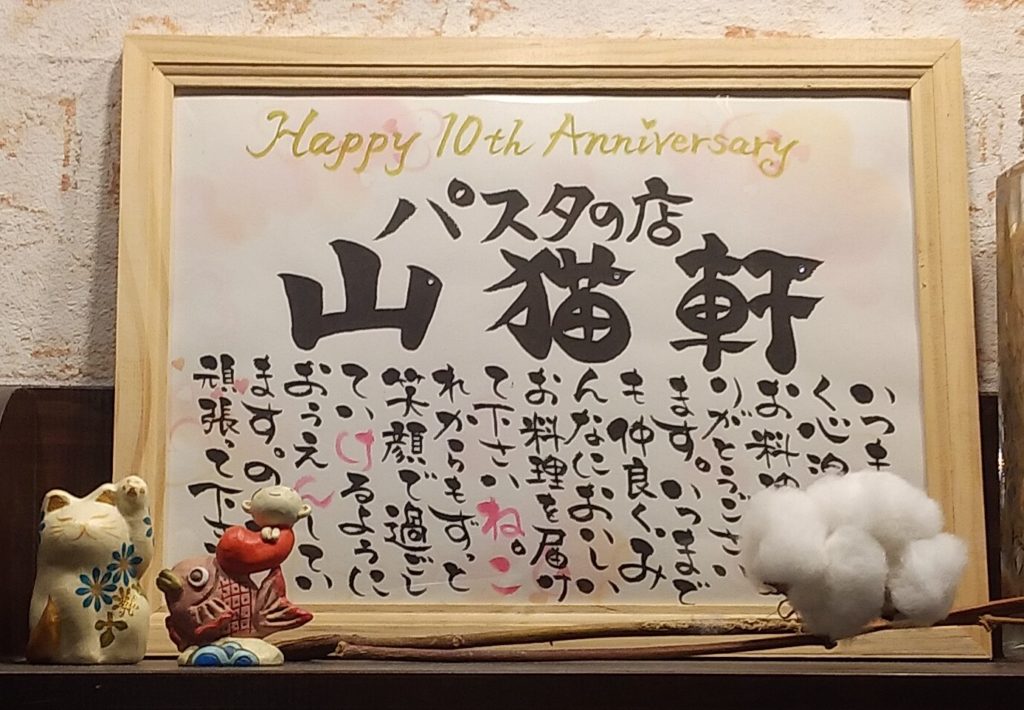 Happy 10th Anniversary
パスタの店
山猫軒
いつも
く心温
お料理
りがとうござい
ます。いつまで
も仲良く、み
んなにおいしい
お料理を届け
て下さいね。こ
れからもずっと
笑顔で過ごし
ていけるように
おうえんしてい
ます。の
頑張って下さ